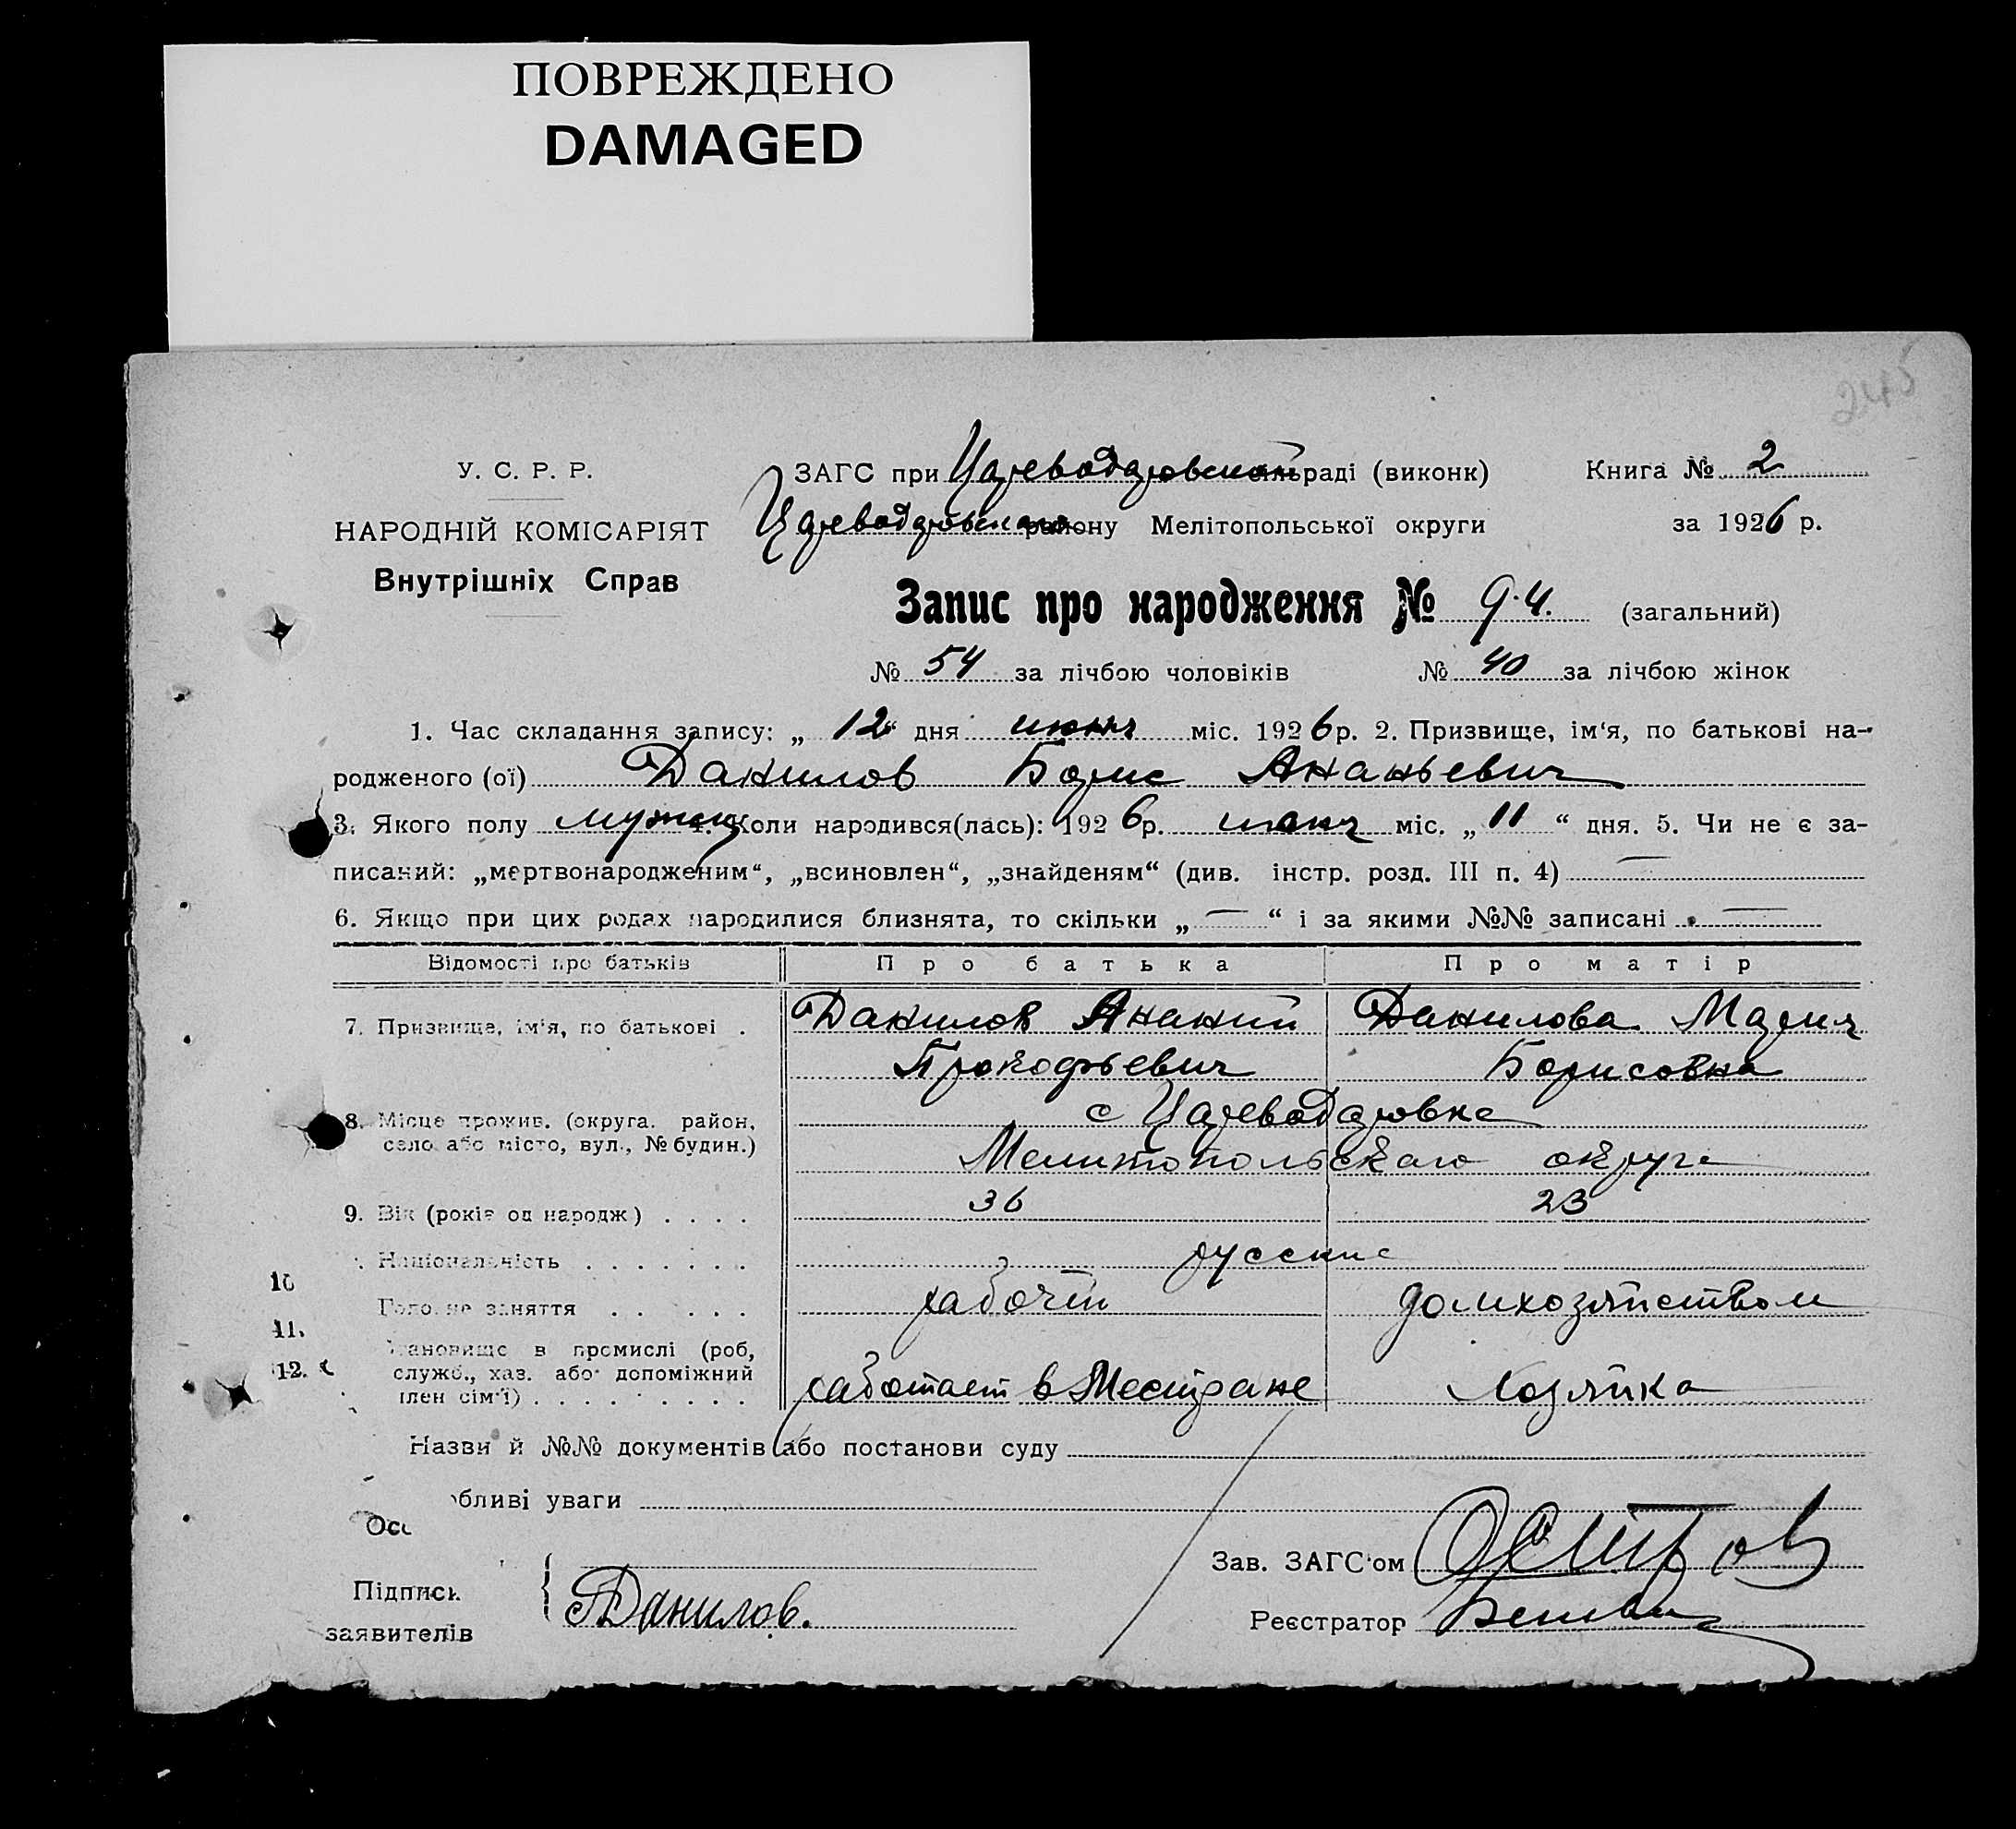 ПОВРЕЖДЕНО
DAMAGED
245
У. С. Р. Р.
НАРОДНІЙ КОМІСАРІЯТ
Внутрішніх Справ
ЗАГС при Цареводаровской сільраді (виконк) Книга № 2
Цареводаровского району Мелітопольської округи за 1926 р.
Запис про народження № 94. (загальний)
№ 54 за лічбою чоловіків № 40 за лічбою жінок
1. Час складання запису: „ 12 “ дня июня міс. 1926 р. 2. Призвище, ім‘я, по батькові на-
родженого (ої) Данилов Борис Ананьевич
3. Якого полу мужск 4. Коли народився(лась): 1926 р. июня міс. „ 11 “ дня. 5. Чи не є за-
писаний: „мертвонародженим“, „всиновлен“, „знайденям“ (див. інстр. розд. III п. 4) —
6. Якщо при цих родах народилися близнята, то скільки „ — “ і за якими №№ записані —
Відомості про батьків Про батька Про матір
7. Призвище, ім‘я, по батькові . Данилов Ананий Данилова Мария
Прокофьевич Борисовна
8. Місце прожив. (округа. район, с Цареводаровке
село або місто, вул., № будин.) Мелитопольского округа
9. Вік (років од народж) . . . . 36 23
10 Національність . . . . . . . русские
11. Головне заняття . . . . . рабочий домхозяйством
12. Становище в промислі (роб,
служб., хаз. або допоміжний
член сім‘ї) . . . . . . . . . работает в Хозяйка
Назви й №№ документів або постанови суду
Особливі уваги
Зав. ЗАГС‘ом
Підписи
заявителів Данилов.
Реєстратор